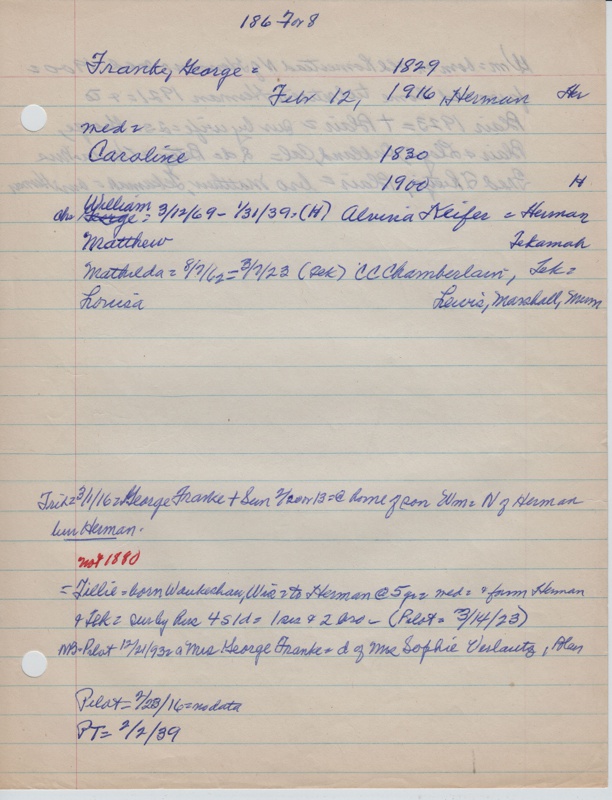 186 7 or 8
Franke, George = 1829
Febr 12, 1916, Herman Her
med =
Caroline 1830
1900 H
ch = William
George = 3/12/69 - 1/31/39 = (H) Alvina Keifer = Herman
Matthew Tekamah
Mathilda = 8/7/62 = 3/7/23 (Tek) CC Chamberlain, Tek =
Louisa Lewis, Marshall, Mum
Trib = 3/1/16 = George Franke + Sun 2/20 or 13 = @ home of son Wm = N of Herman
bur Herman.
not 1880
= Tillie = born Waukeshau, Wis = to Herman @ 5 yr = med = + farm Herman
+ Tek = sur by hus 4 s 1 d = 1 sis + 2 bro - (Pilot = 3/14/23)
NB = Pilot 12/21/93 = a Mrs George Franke = d of Mrs Sophie , Blair
Pilot = 2/23/16 = no data
PT = 2/2/39